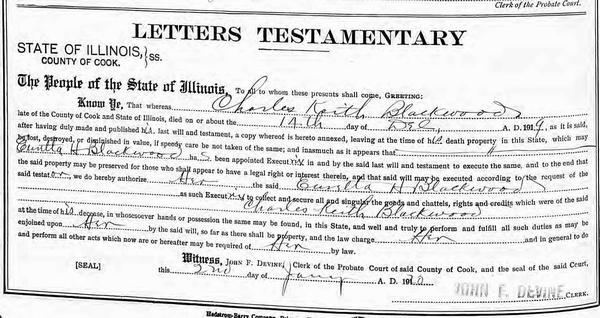 Clerk of the Probate Court.
LETTERS TESTAMENTARY
STATE OF ILLINOIS, } ss.
COUNTY OF COOK.
The People of the State of Illinois, To all to whom these presents shall come, GREETING:
Know Ye, That whereas Charles Keith Blackwood
late of the County of Cook and State of Illinois, died on or about the 14th day of Dec., A. D. 1919, as it is said,
after having duly made and published his last will and testament, a copy whereof is hereto annexed, leaving at the time of his death property in this State, which may
be lost, destroyed, or diminished in value, if speedy care be not taken of the same; and inasmuch as it appears that
Eunetta H Blackwood has been appointed Executrix in and by the said last will and testament to execute the same, and to the end that
the said property may be preserved for those who shall appear to have a legal right or interest therein, and that said will may be executed according to the request of the
said testator, we do hereby authorize Her the said Eunetta H Blackwood
as such Executrix to collect and secure all and singular the goods and chattels, rights and credits which were of the said
Charles Keith Blackwood
at the time of his decease, in whosesoever hands or possession the same may be found, in this State, and well and truly to perform and fulfill all such duties as may be
enjoined upon Her by the said will, so far as there shall be property, and the law charge Her and in general to do
and perform all other acts which now are or hereafter may be required of Her by law.
Witness, JOHN F. DEVINE, Clerk of the Probate Court of said County of Cook, and the seal of said Court,
[SEAL] this 2nd day of Jany A. D. 1920 JOHN F. DEVINE
CLERK.